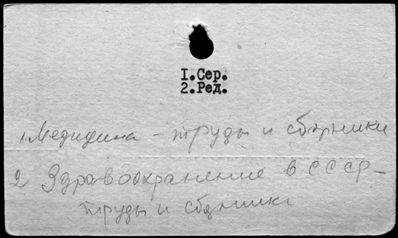 1.Сер.
2.Ред.
1. Медицина - труды и сборники
2) Здравоохранение в СССР -
труды и сборники